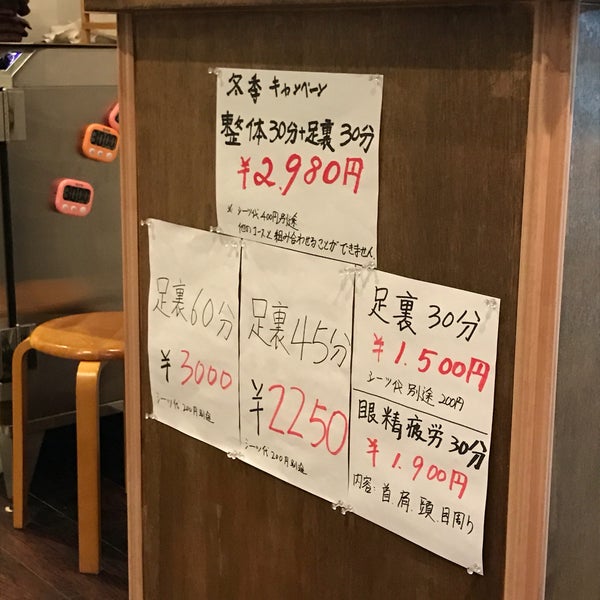 冬季キャンペーン
整体30分+足裏30分
¥2.980円
※ シーツ代400円別途
他のコースと組み合わせることができません
足裏60分
¥3000
シーツ代 200円別途
足裏45分
¥2250
シーツ代 200円別途
足裏30分
¥1.500円
シーツ代 別途200円
眼精疲労30分
¥1.900円
内容:首.肩.頭.目周り